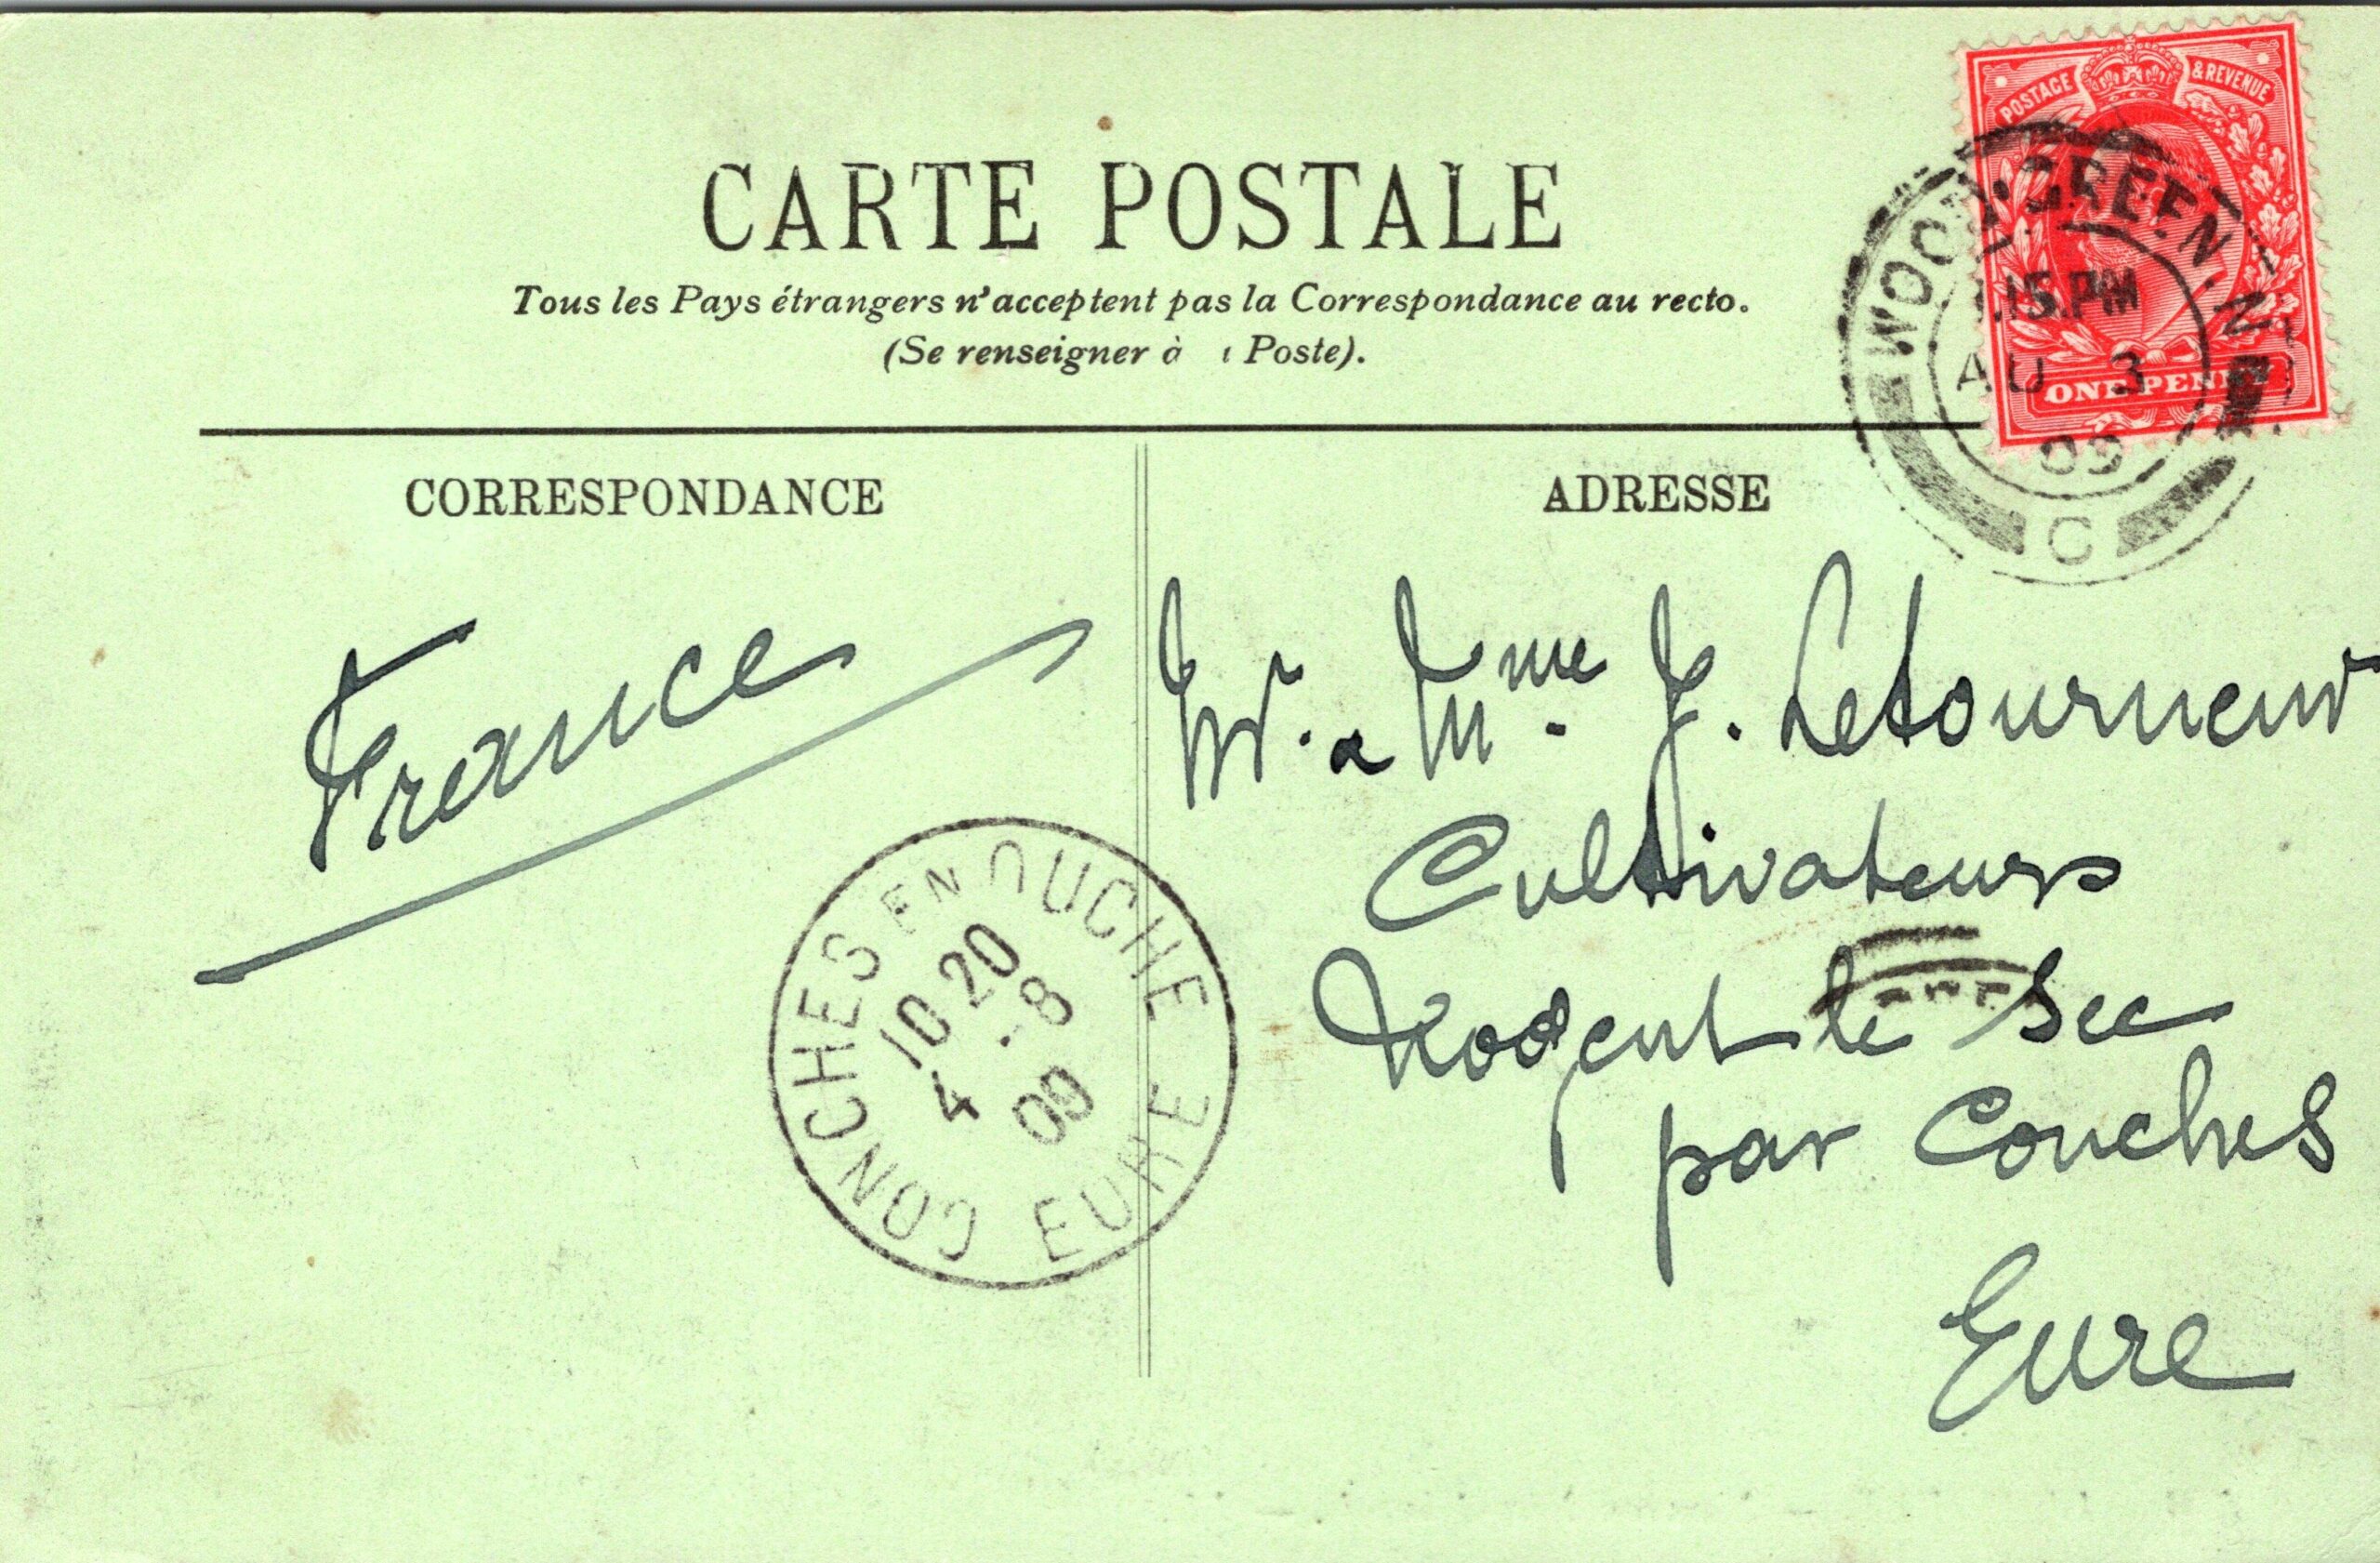 POSTAGE & REVENUE
ONE PENNY
WOOD GREEN. N
.15.PM
AU 3
09
C
CARTE POSTALE
Tous les Pays étrangers n'acceptent pas la Correspondance au recto.
(Se renseigner à Poste).
CORRESPONDANCE
ADRESSE
France
Mr. & Mme. J. Letourneur
Cultivateurs
Nogent le Sec
par Conches
Eure
CONCHES EN OUCHE
10 20
4 -8
09
EURE